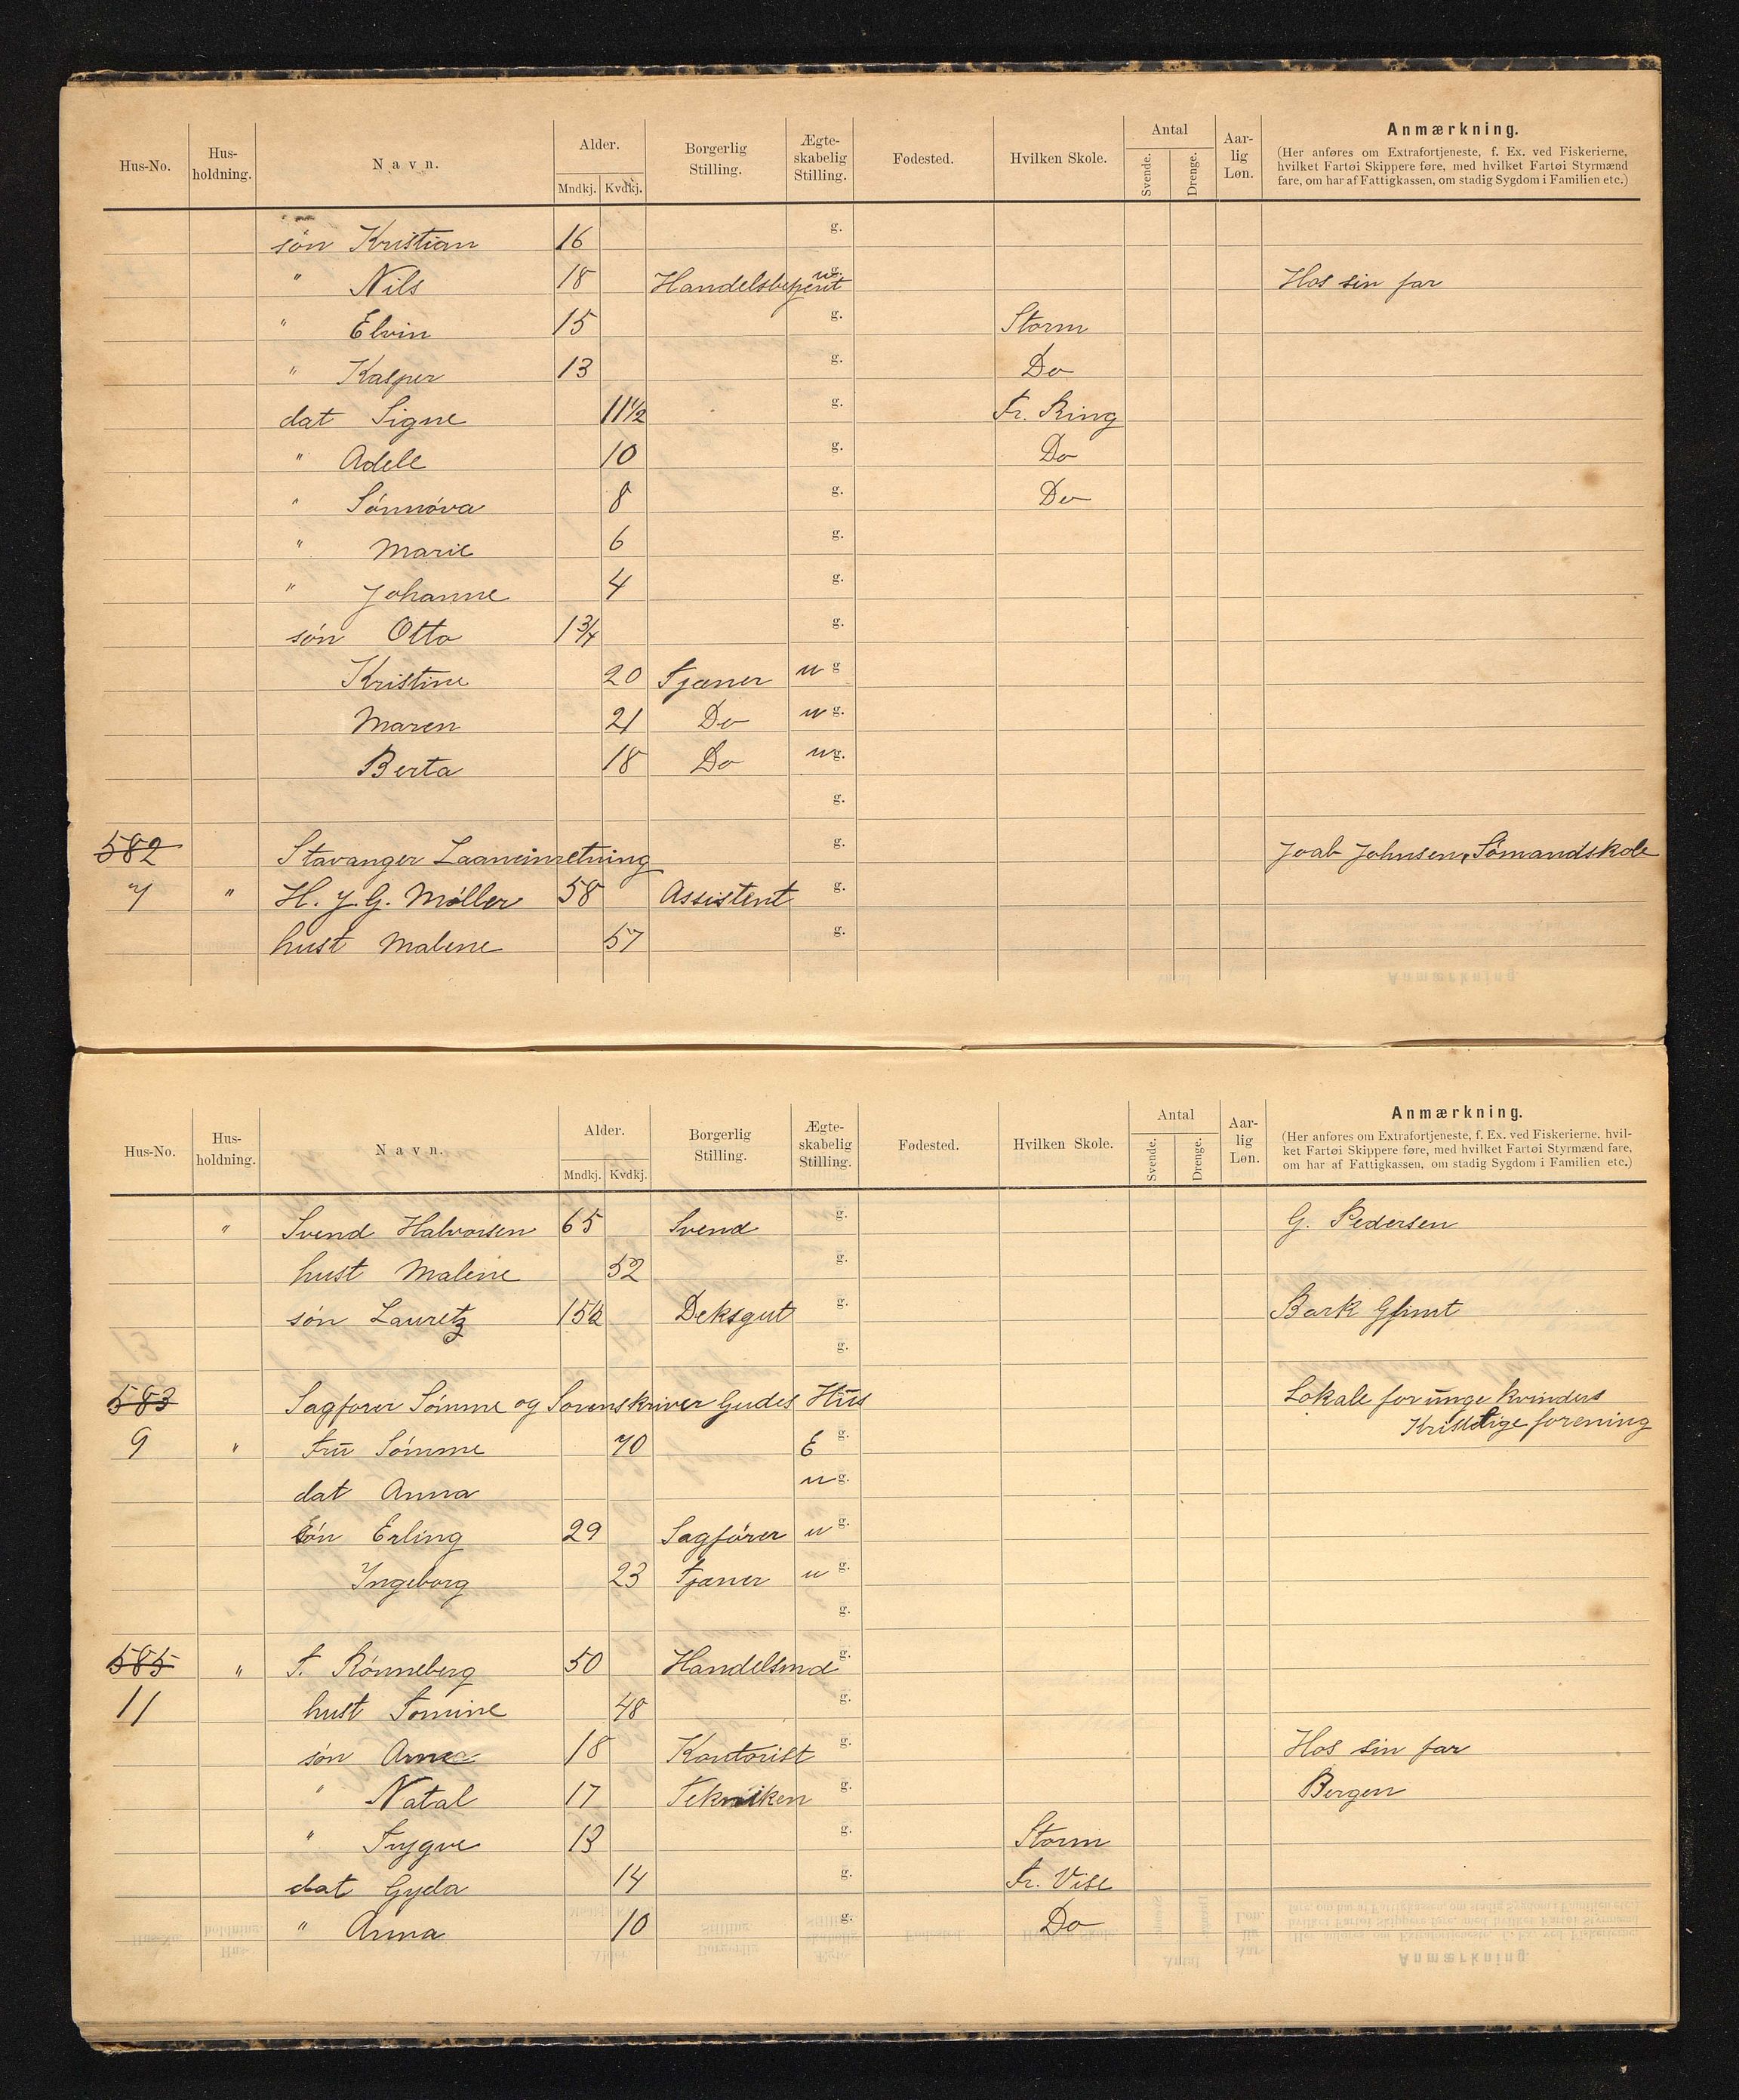 Hus-No. Hus-holdning. Navn. Alder. Mndkj. Kvdkj. Borgerlig Stilling. Ægte-skabelig Stilling. Fødested. Hvilken Skole. Antal Svende. Drenge. Aar-lig Løn. Anmærkning.
(Her anføres om Extrafortjeneste, f. Ex. ved Fiskerierne,
hvilket Fartøi Skippere føre, med hvilket Fartøi Styrmænd
fare, om har af Fattigkassen, om stadig Sygdom i Familien etc.)
søn Kristian 16 g.
" Nils 18 Handelsbetjent u g. Hos sin far
" Elvin 15 g. Storm
" Kasper 13 g. Do
dat Signe 11½ g. Fr. Ring
" Adele 10 g. Do
" Sønnøva 8 g. Do
" Marie 6 g.
" Johanne 4 g.
søn Otto 1¾ g.
Kristine 20 Tjæner u g
Maren 21 Do u g.
Berta 18 Do u g.
g.
582 Stavanger Laaneinretning g. Joab Johnsen, Sømandskole
7 " H. J. G. Møller 58 Assistent g.
hust Malene 57 g.
Hus-No. Hus-holdning. Navn. Alder. Mndkj. Kvdkj. Borgerlig Stilling. Ægte-skabelig Stilling. Fødested. Hvilken Skole. Antal Svende. Drenge. Aar-lig Løn. Anmærkning.
(Her anføres om Extrafortjeneste, f. Ex. ved Fiskerierne, hvil-
ket Fartøi Skippere føre, med hvilket Fartøi Styrmænd fare,
om har af Fattigkassen, om stadig Sygdom i Familien etc.)
" Svend Halvorsen 65 Svend g. G. Pedersen
hust Malene 52 g.
søn Lauretz 15½ Deksgut g. Bark Glimt
g.
583 Sagfører Sømme og Sorenskriver Gudes Hus Lokale for unge kvinders
Kristelige forening
9 " Fru Sømme 70 E g.
dat Anna u g.
søn Erling 29 Sagfører u g.
Ingeborg 23 Tjæner u g.
g.
585 " T. Rønneberg 50 Handelsmd g.
11 hust Tomine 48 g.
søn Arne 18 Kontorist g. Hos sin far
" Natal 17 Tekniken g. Bergen
" Trygve 13 g. Storm
dat Gyda 14 g. Fr. Vise
" Anna 10 g. Do